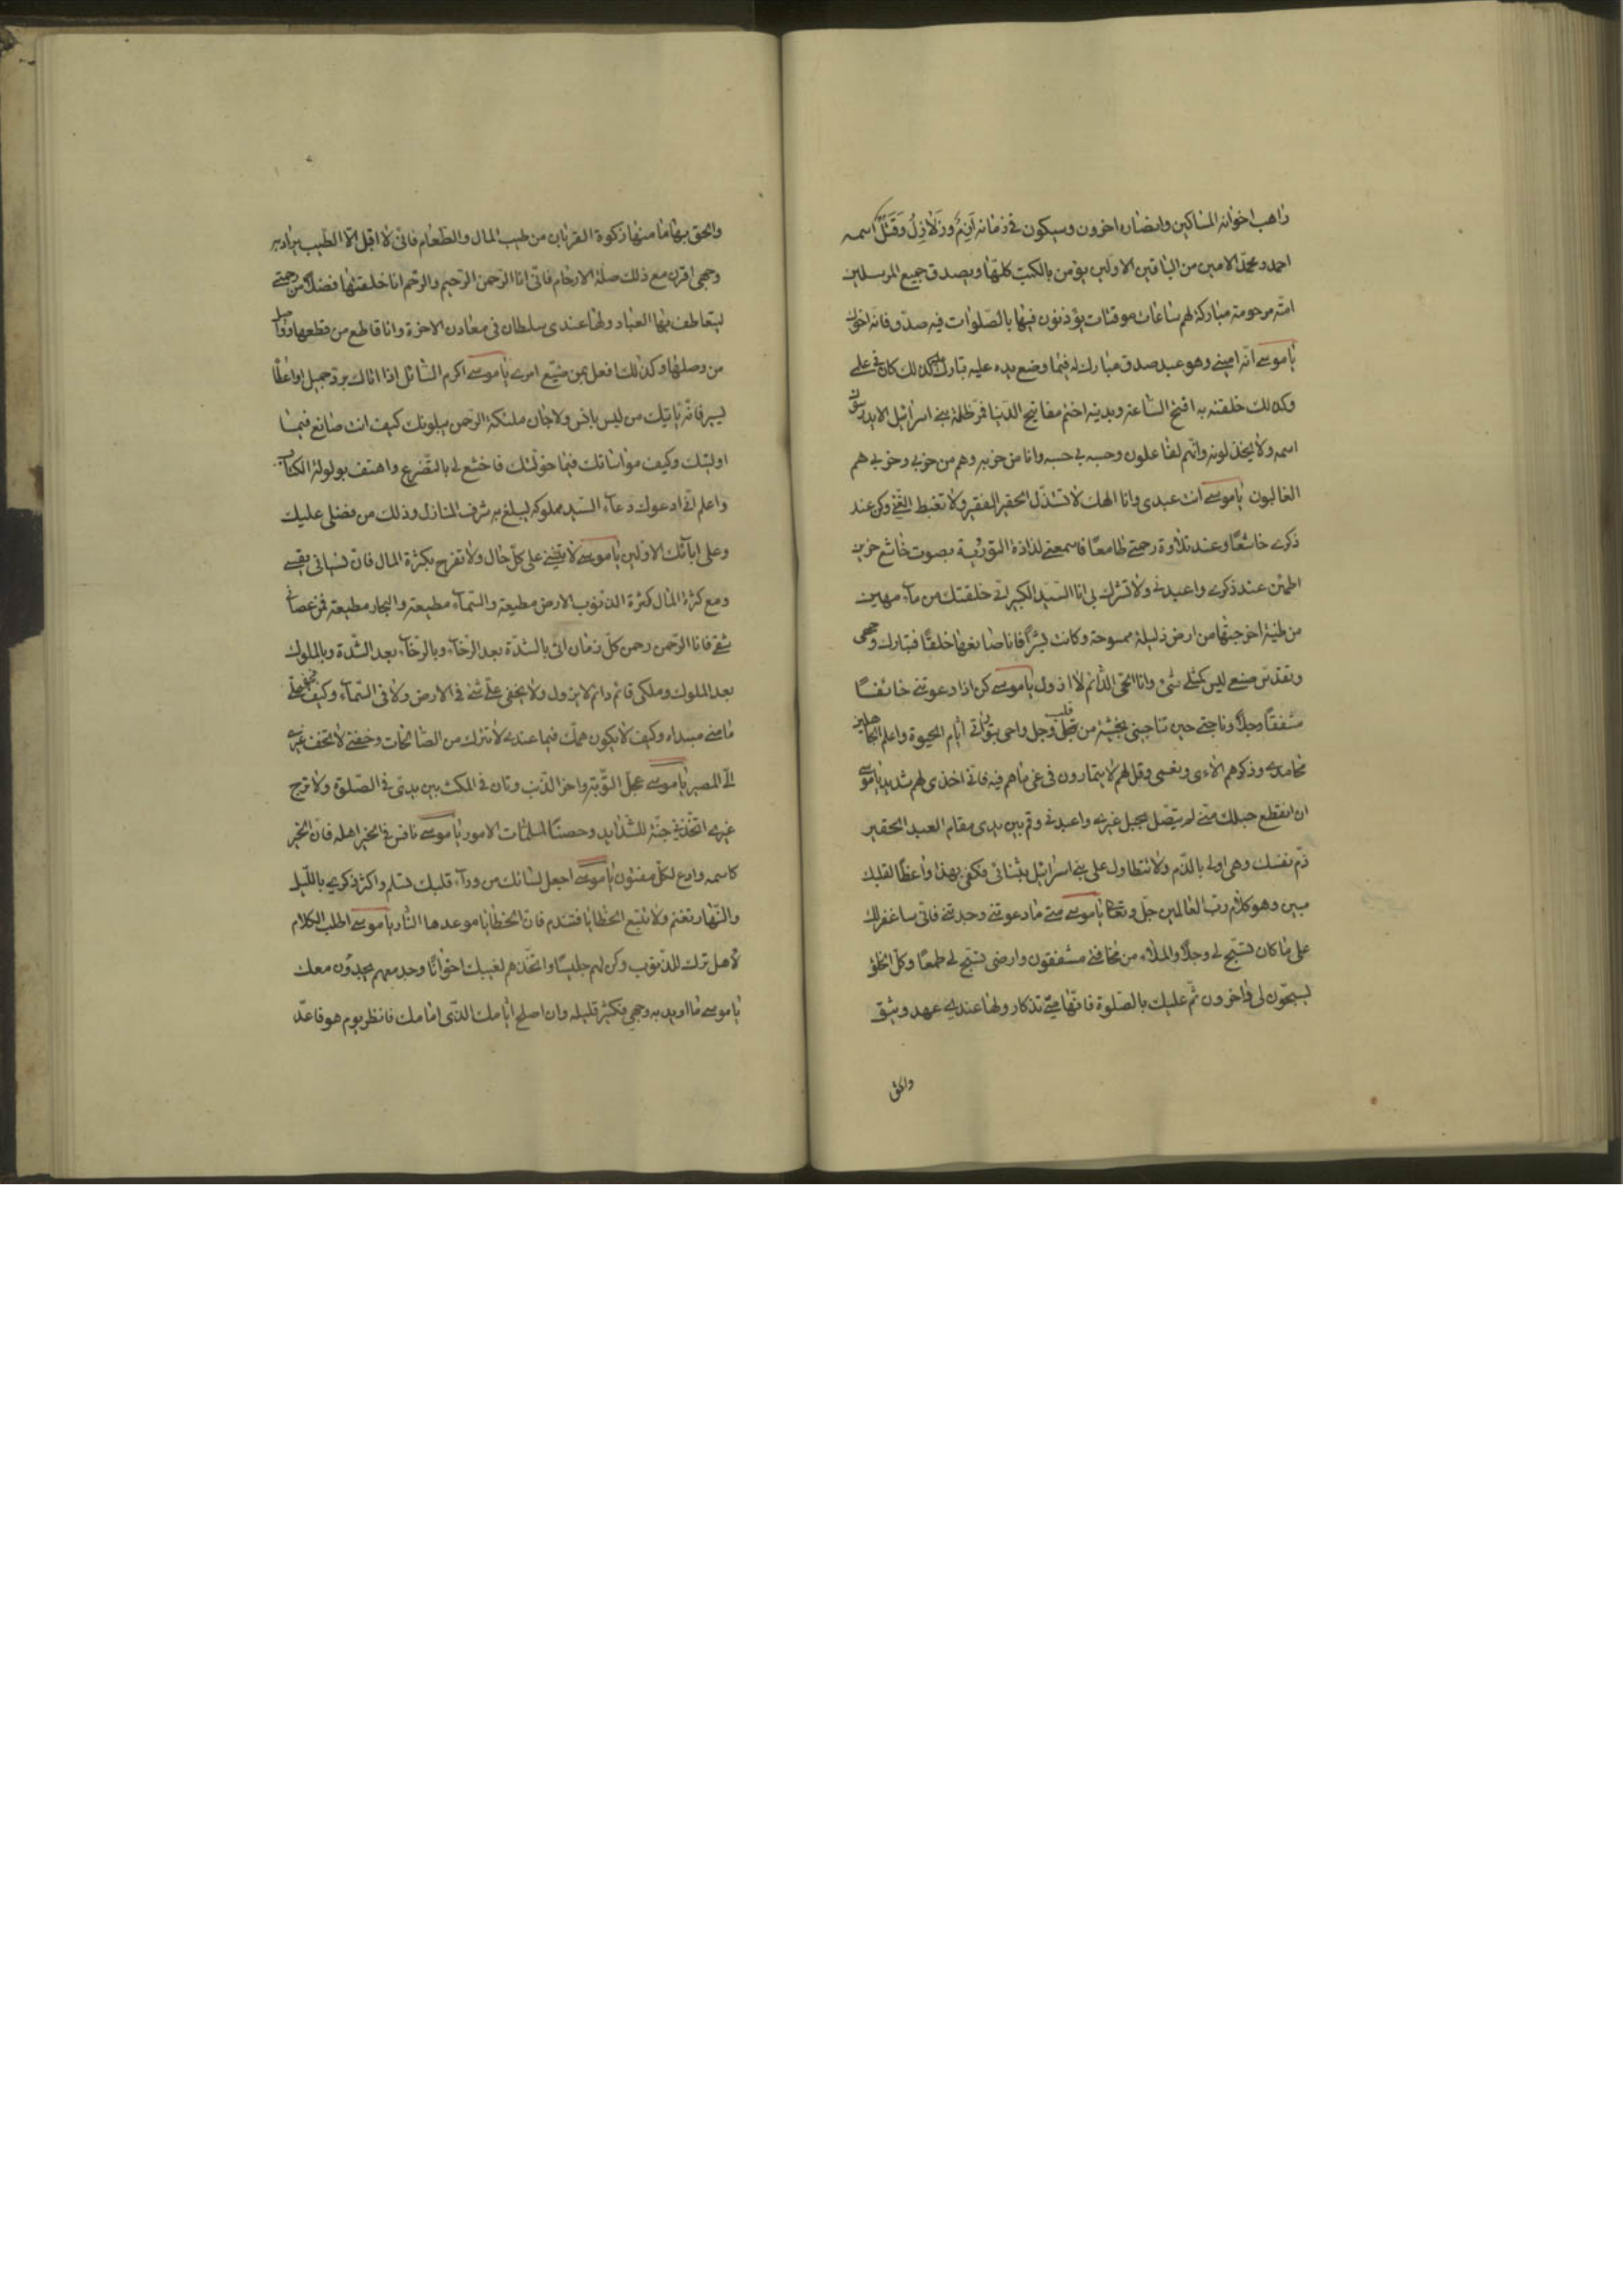 راهب اخوانه المساكين وانصاره اخرون وسيكون فى زمانه اَزِمٌ وزَلازِلُ وَقَتْلٌ اسمه
احمد ومحمّد الامين من الباقين الاولين يؤمن بالكتب كلّها ويصدق جميع المرسلين
امّته مرحومة مباركة لهم ساعات موقتات يؤذنون فيها بالصّلوات فيه صدّق فانه اخوك
يا موسى انّه امينى وهو عبد صدق مبارك له فيما وضع يده عليه نبارك عليه كذلك كان فى علمى
وكذلك خلقته به افتح السّاعة وبدينه اختم مفاتيح الدّنيا فمر ظلمة بنى اسرائيل الا يدرسوا
اسمه ولا يخذلونه وانّهم لفاعلون وحبه لى حسبة وانا من حزبه وهم من حزبى وحزبى هم
الغالبون يا موسى انت عبدى وانا الهك لا تستذلّ الحقير الفقير ولا تغبط الغنىّ وكن عند
ذكرى خاشعًا وعند تلاوة رحمتى طامعًا فاسمعنى لذاذة التورية بصوت خاشع حزين
اطمئن عند ذكرى واعبدنى ولا تشرك بى انا السّيّد الكبير انّى خلقتك من ماء مهين
من طينة اخرجتها من ارض ذليلة ممسوحة وكانت بشرًا فانا صانعها خلقًا فتبارك وجهى
وتقدّس صنعى ليس كمثلى شىء وانا الحىّ الدّائم لا ازول يا موسى كن اذا دعوتنى خائفًا
مشفقًا وجلاً وناجنى حين تناجينى بخشية من قلب وجل واحى بتوراتى ايّام الحيوة واعلم الجاهلين
محامدى وذكّرهم الاءى ونعمى وقل لهم لا يتمادون فى غىّ ما هم فيه فانّ اخذى لهم شديد يا موسى
ان انقطع حبلك منّى لم يتّصل بحبل غيرى واعبدنى وقم بين يدى مقام العبد الحقير
ذمّ نفسك وهى اولى بالذّم ولا تتطاول على بنى اسرائيل بكتابى فكفى بهذا واعظًا لقلبك
مبين وهو كلام ربّ العالمين جلّ وتعالى يا موسى متى ما دعوتنى وجدتنى فانّى ساغفر لك
على ما كان تسبّح لى وجلاً والملاء من مخافتى مشفقون وارضى تسبّح لى طمعًا وكلّ الخلق
يسبحّون لى داخرون ثمّ عليك بالصّلوة فانّها منّى تذكار ولها عندى عهد وثيق
والحق
والحق بها ما منها زكوة القربان من طيب المال والطّعام فانّى لا اقبل الّا الطّيب يراد به
وجهى اقرن مع ذلك صلة الارحام فانّى انا الرّحمن الرّحيم والرّحم انا خلقتها فضلاً من رحمتى
ليتعاطف بها العباد ولها عندى سلطان فى معاد الاخرة وانا قاطع من قطعها وواصل
من وصلها وكذلك افعل بمن ضيّع امرى يا موسى اكرم السّائل اذا اتاك بردّ جميل او اعطاء
يسير فانّه ياتيك من ليس بانس ولا جان ملئكة الرّحمن يبلونك كيف انت صانع فيما
اوليتك وكيف مواساتك فيما خوّلتك فاخشع لى بالتّضرع واهتف بولولة الكتاب
واعلم انّى ادعوك دعاء السّيّد مملوكه ليبلغ به شرف المنازل وذلك من فضلى عليك
وعلى ابآئك الاوّلين يا موسى لا تنسنى على كلّ حال ولا تفرح بكثرة المال فانّ نسيانى يقسى
ومع كثرة المال كثرة الذنوب الارض مطيعة والسّمآء مطيعة والبحار مطيعة فمن عصانى
شقى فانا الرّحمن رحمن كلّ زمان اتى بالشدّة بعد الرّخآء وبالرّخآء بعد الشّدة وبالملوك
بعد الملوك وملكى قائم دائم لا يزول ولا يخفى علىّ شىء فى الارض ولا فى السّمآء وكيف يخفى علىّ
ما منّى مبتداه وكيف لا يكون همّك فيما عندى لا تترك من الصّالحات وخفنى لا تخف غيرى
الىّ المصير يا موسى عجّل التّوبة واخّر الذّنب وتانّ فى المكث بين يدىّ فى الصّلوة ولا ترج
غيرى اتّخذنى جنّة للشّدايد وحصنًا لملمّات الامور يا موسى نافس فى الخير اهله فانّ الخير
كاسمه ودع لكلّ مفتون يا موسى اجعل لسانك من ورآء قلبك تسلم واكثر ذكرى باللّيل
والنّهار تغنم ولا تتّبع الخطايا فتندم فانّ الخطايا موعدها النّار يا موسى اطلب الكلام
لاهل ترك الذّنوب وكن لهم جليسًا واتّخذهم لغيبك اخوانًا وجد معهم يجدّون معك
يا موسى ما اريد به وجهى فكثير قليله وان اصلح ايّامك الذّى امامك فانظر يوم هو فاعدّ